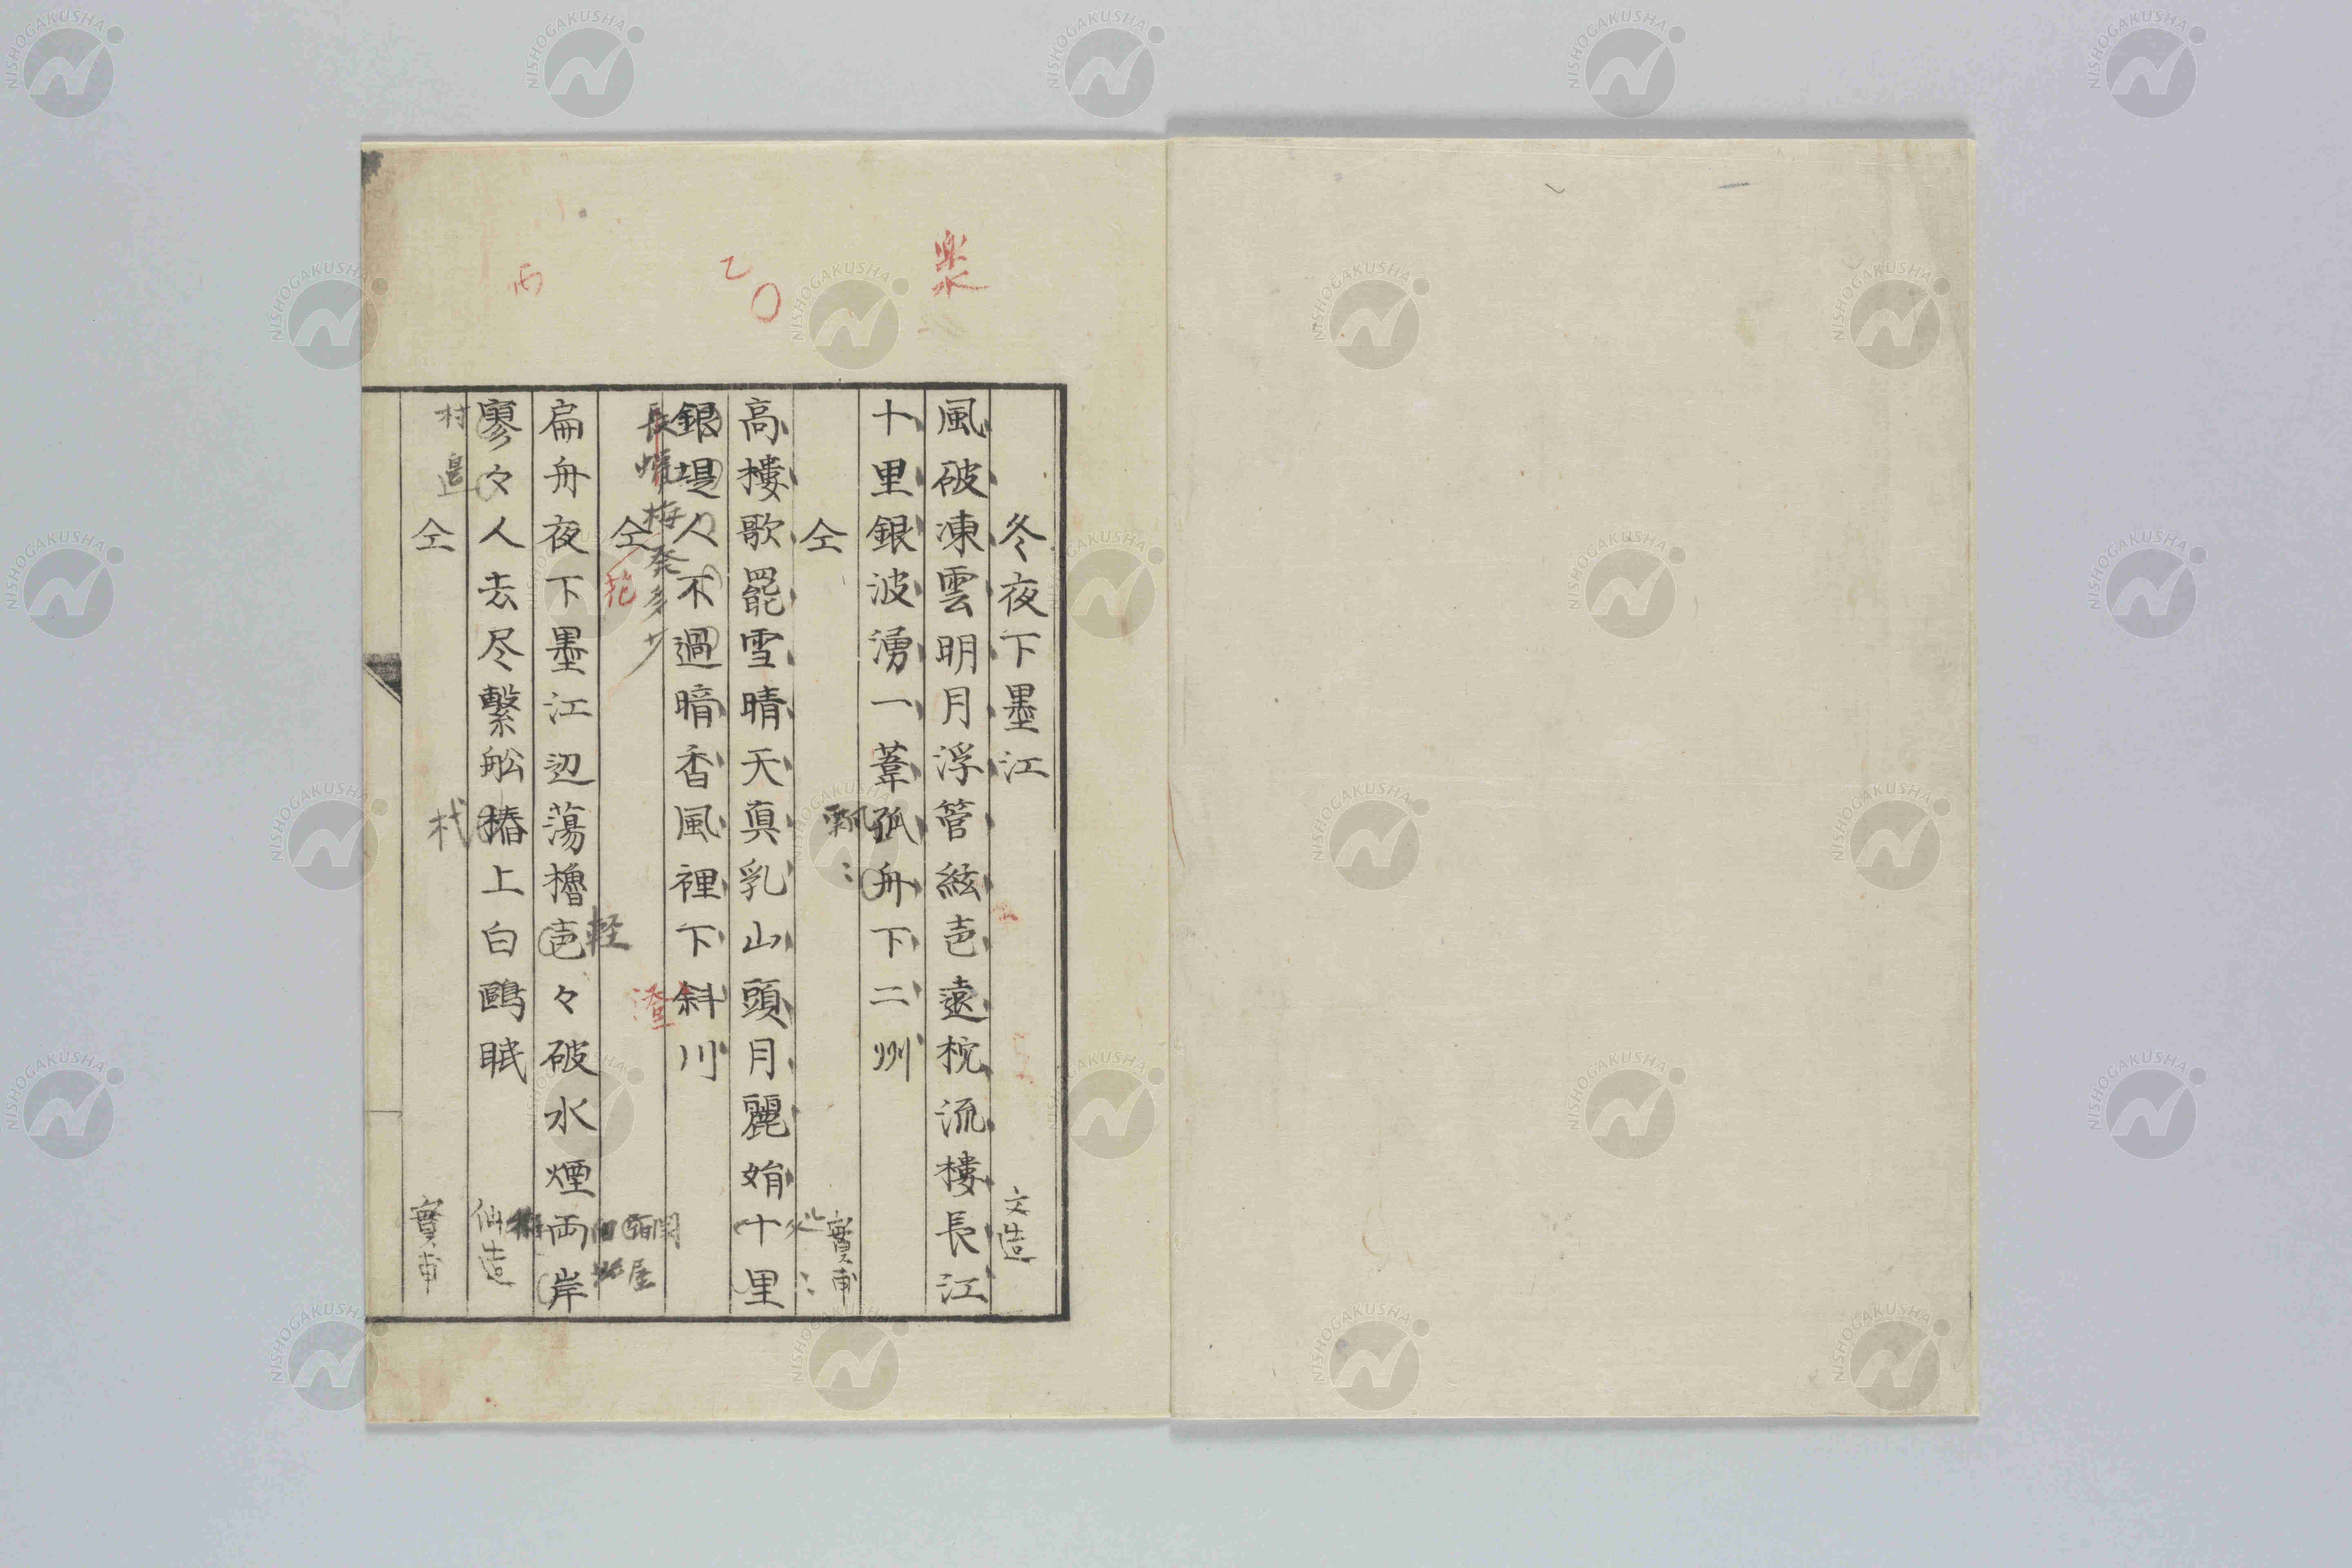 楽
冬夜下墨江
文造
風破凍雲明月浮管絃壱遠枕流樓長江
十里銀波湧一葦孤舟下二洲
飄〻
仝
實甫
乙
高樓歌罷雪晴天真乳山頭月麗娟十里
銀堤人不過暗香風裡下斜川
長
梅發多少
花
澄
仝
丙
扁舟夜下墨江辺蕩櫓壱々破水煙両岸
軽
寥々人去尽繫舩樁上白鷗眠
仙造
村邉
杙
仝
實甫
NISHOGAKUSHA